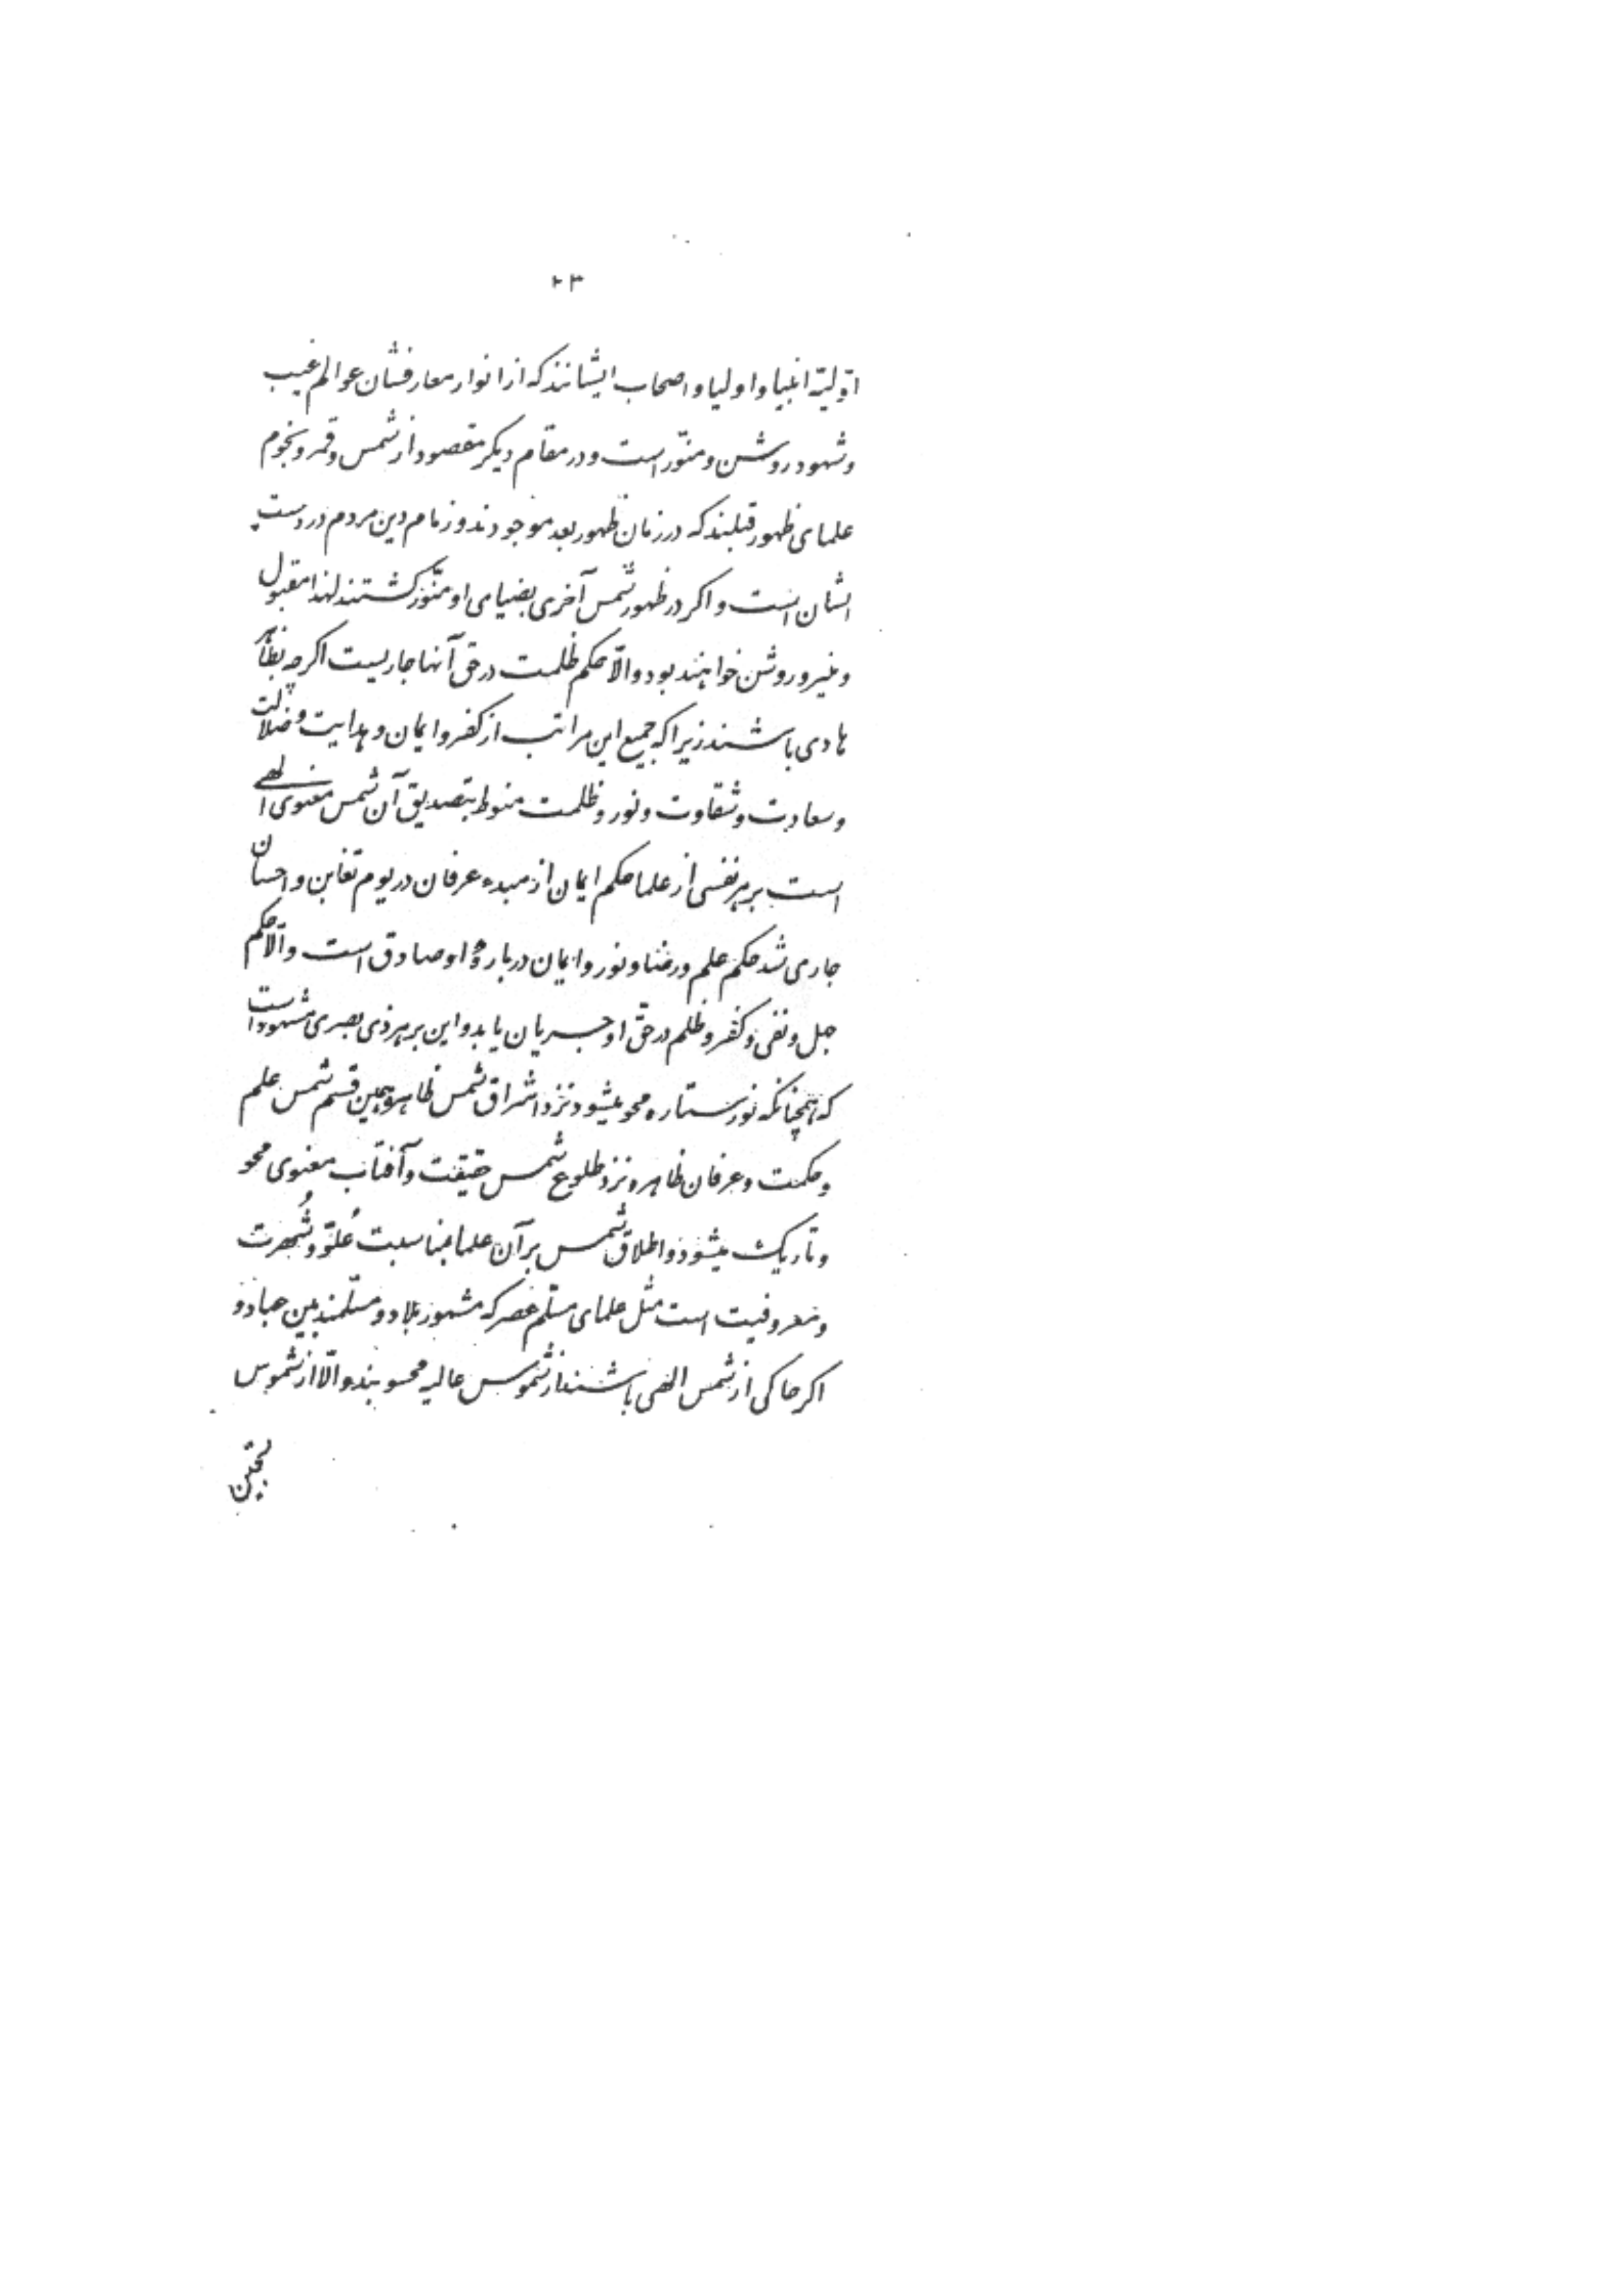 ۲۳
اوّلیّه انبیا و اولیا و اصحاب ایشانند که از انوار معارفشان عوالم غیب
و شهود روشن و منوّر است و در مقام دیگر مقصود از شمس و قمر و نجوم
علمای ظهور قبلند که در زمان ظهور بعد موجودند و زمام دین مردم در دست
ایشان است و اگر در ظهور شمس آخری بضیای او منوّر گشتند لهذا مقبول
و منیر و روشن خواهند بود والّا حکم ظلمت در حق آنها جاریست اگرچه بظاهر
هادی باشند زیرا که جمیع این مراتب از کفر و ایمان و هدایت و ضلالت
و سعادت و شقاوت و نور و ظلمت منوط بتصدیق آن شمس معنوی الهی
است بر هر نفسی از علما حکم ایمان از مبدء عرفان در یوم تغابن و احسان
جاری شد حکم علم و رضا و نور و ایمان درباره او صادق است والّا حکم
جهل و نفی و کفر و ظلم در حقّ او جریان یابد و این بر هر ذی بصری مشهود است
که همچنانکه نور ستاره محو میشود نزد اشراق شمس ظاهره همین قسم شمس علم
و حکمت و عرفان ظاهره نزد طلوع شمس حقیقت و آفتاب معنوی محو
و تاریک میشود و اطلاق شمس بر آن علما بمناسبت عُلوّ و شُهرت
و معروفیت است مثل علمای مسلّم عصر که مشهور بلاد و مسلّمند بین عباد و
اگر حاکی از شمس الهی باشند از شموس عالیه محسوبند والّا از شموس
سجّین